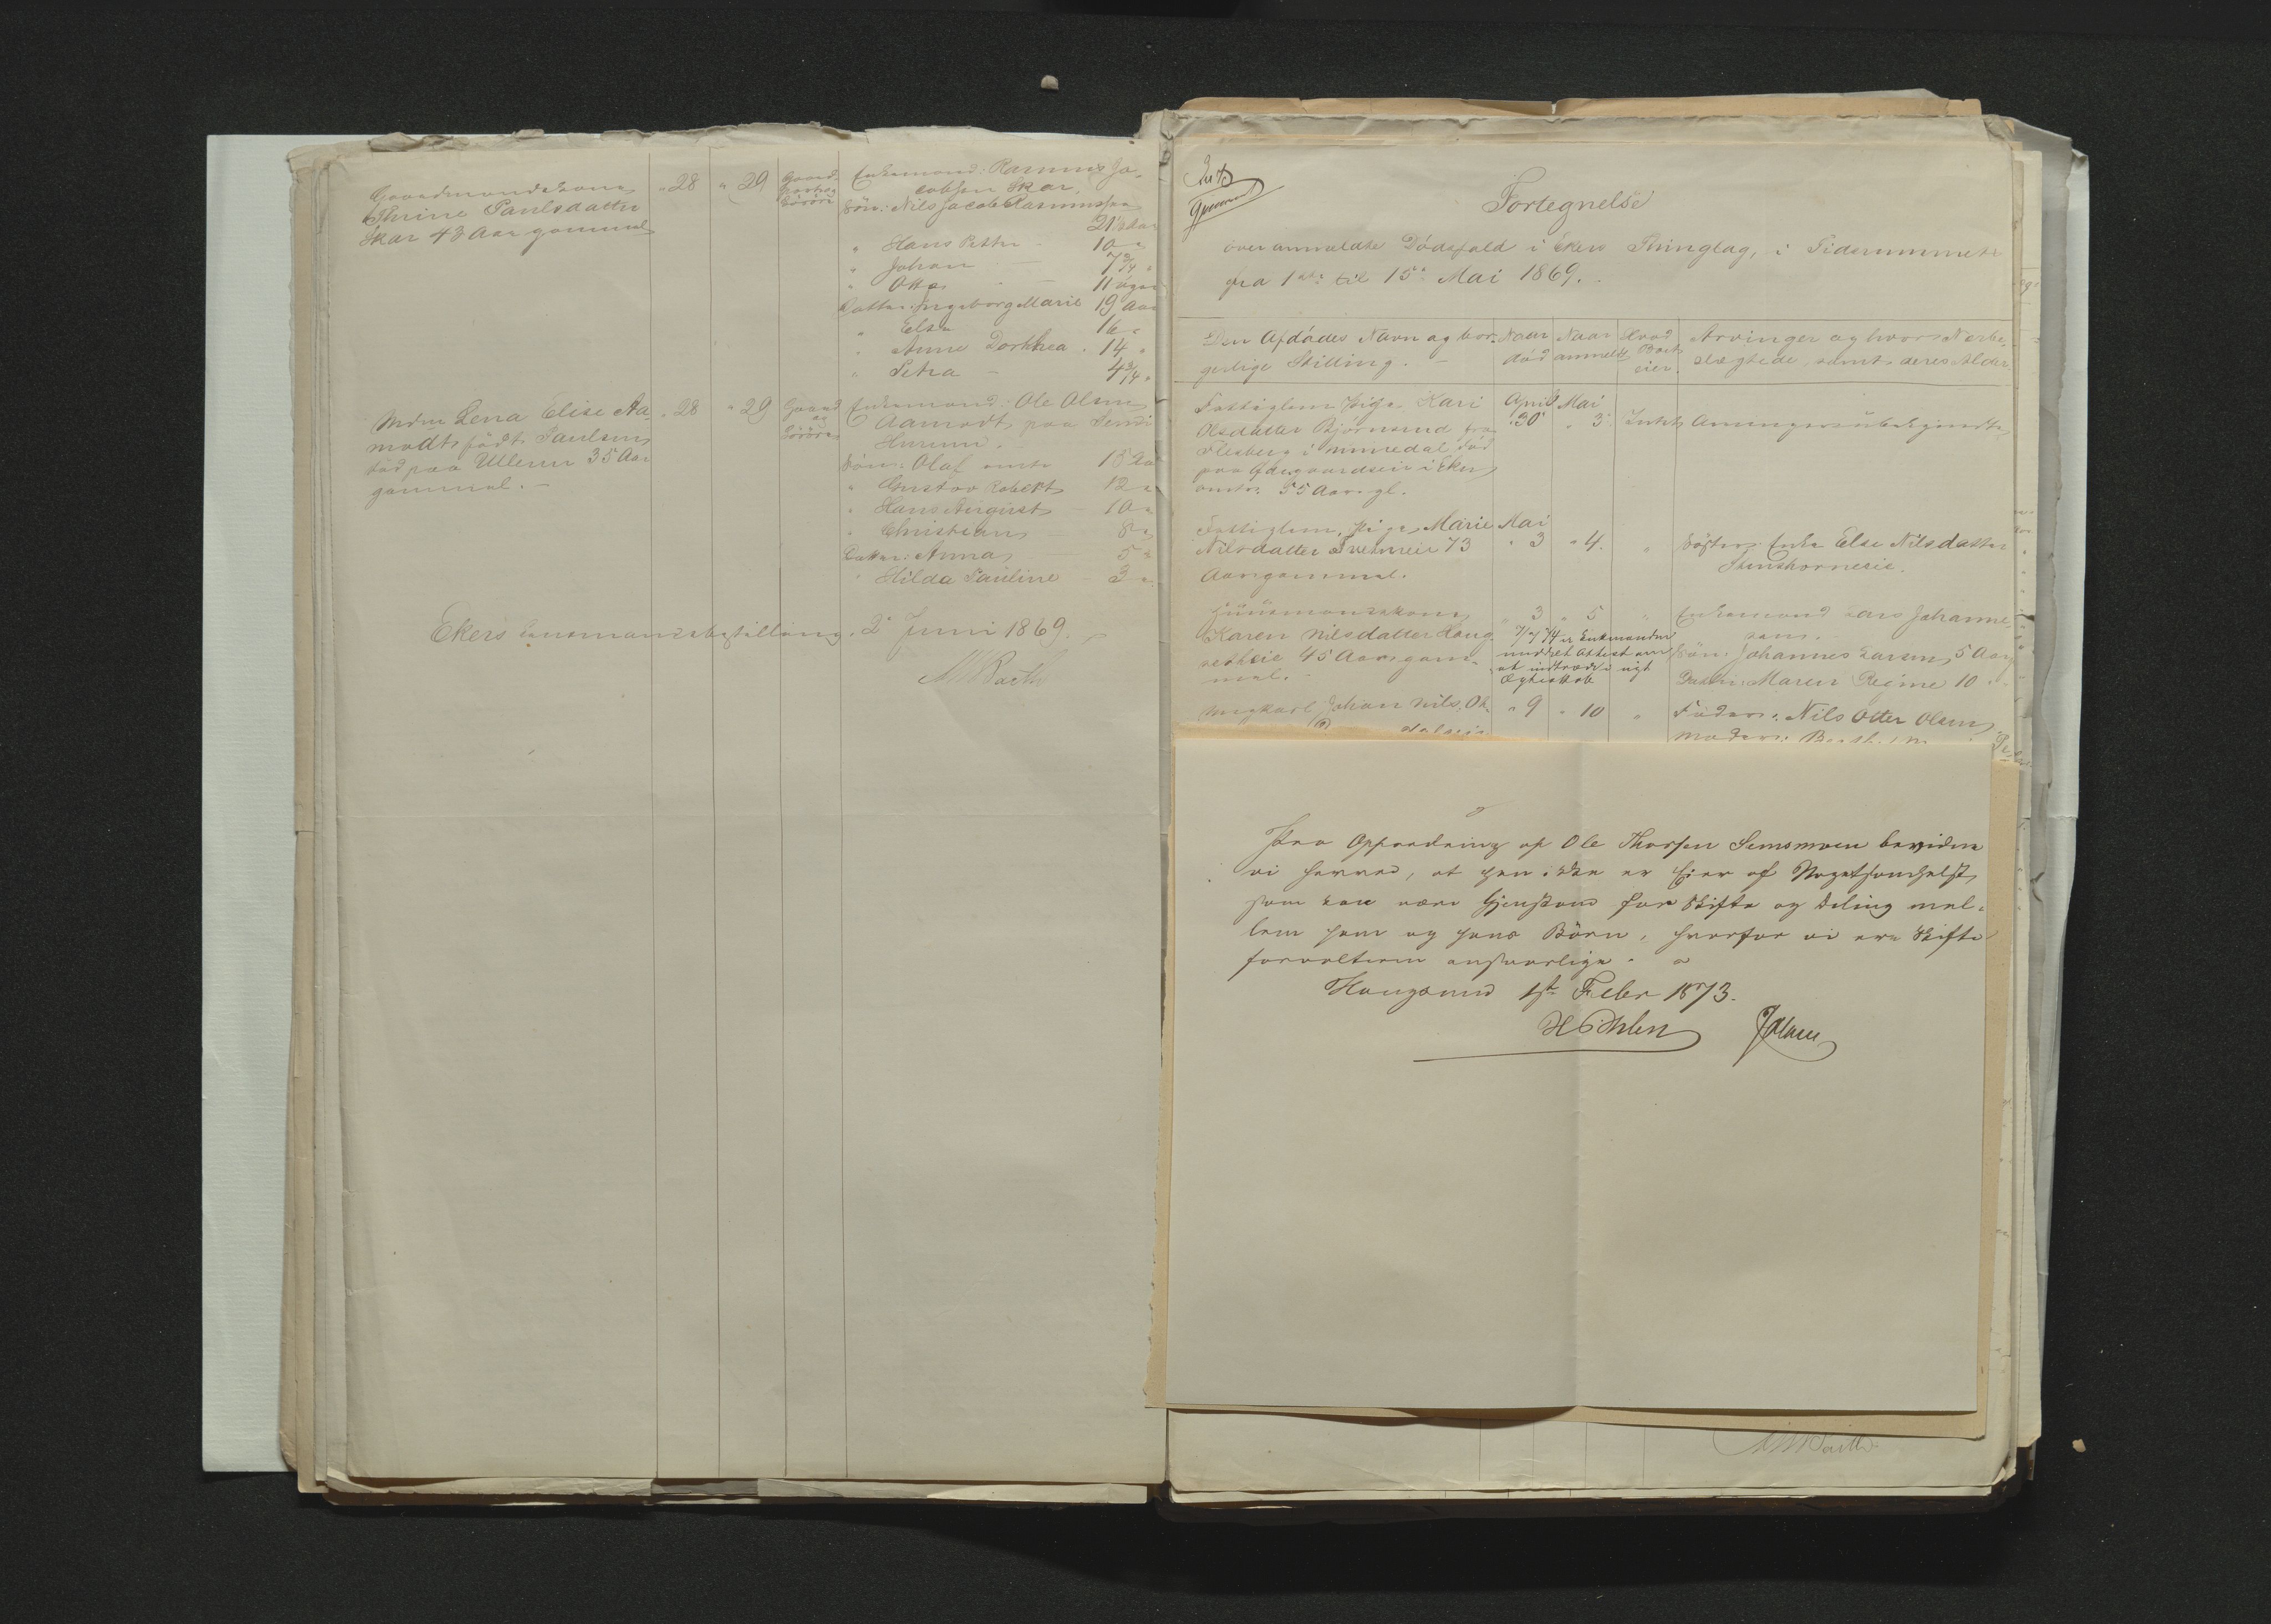 Gaardmandskone
Thrine Paulsdatter
Skar 43 Aar gammel
" 28 " 29 Gaard
Løsøre
Enkemand: Rasmus Ja-
cobsen Skar,
Søn: Nils Jacob Rasmussen
21 1/2 Aar
" Hans Petter - 10 "
" Johan - 7 3/4 "
" Otto - 11 Uger
Datter: Ingeborg Marie 19 Aar
" Else 16 "
" Anne Dorthea . 14 "
" Petra - 4 3/4 "
Mdm Lena Elise Aa-
modt født Paulsen
død paa Ullern 35 Aar
gammel. -
" 28 " 29 Gaard
og
Løsøre
Enkemand: Ole Olsen
Aamodt paa
Hurum.
Søn: Olaf 15 Aar
" Gustav Robert 12 "
" Hans August - 10 "
" Christian - 8 "
Datter: Anna - 5 "
" Hilda Pauline - 3 "
Ekers Lensmandsbestilling, 2 Juni 1869.
Fortegnelse
over anmeldte Dödsfald i Ekers Thinglag, i Tidsrummet
fra 1ste til 15de Mai 1869.
Den Afdödes Navn og bor-
gerlige Stilling. -
Naar
död
Naar
anmeldt
Hvad
Boet
eier
Arvinger og hvor Nærbe-
slægtede, samt deres Alder
Fattiglem Pige Kari
Olsdatter Björnerud fra
Flesberg i Numedal död
paa i Eker
omtr. 55 Aar gl.
April
30
Mai
" 3
Intet
Arvinger ubekjendte
Fattiglem, Pige Marie
Nilsdatter 73
Aar gammel.
Mai
" 3 " 4. "
Søster: Enke Else Nilsdatter
Huusmandskone
Karen Nilsdatter Haug-
netheie 45 Aar gam-
mel. -
" 3 " 5 "
7/7 74 er Enkemanden
meddelt Attest om
at indtræde i nyt
Ægteskab
Enkemand Lars Johanne-
sen. -
Søn: Johannes Larsen 5 Aar
Datter: Maren Regine 10 "
Ungkarl Johan Nils. Ol-
" 9 " 10 "
Fader: Nils Otter Olsen
Moder:
Paa Opfordring af Ole Thorsen Semsmoen bevidne
vi herved, at han ikke er Eier af Nogetsomhelst,
som kan være Gjenstand for Skifte og Deling mel-
lem ham og hans Börn, hvorfor vi ere Skifte
forvalteren ansvarlige.
Hougsund 1st Febr 1873.